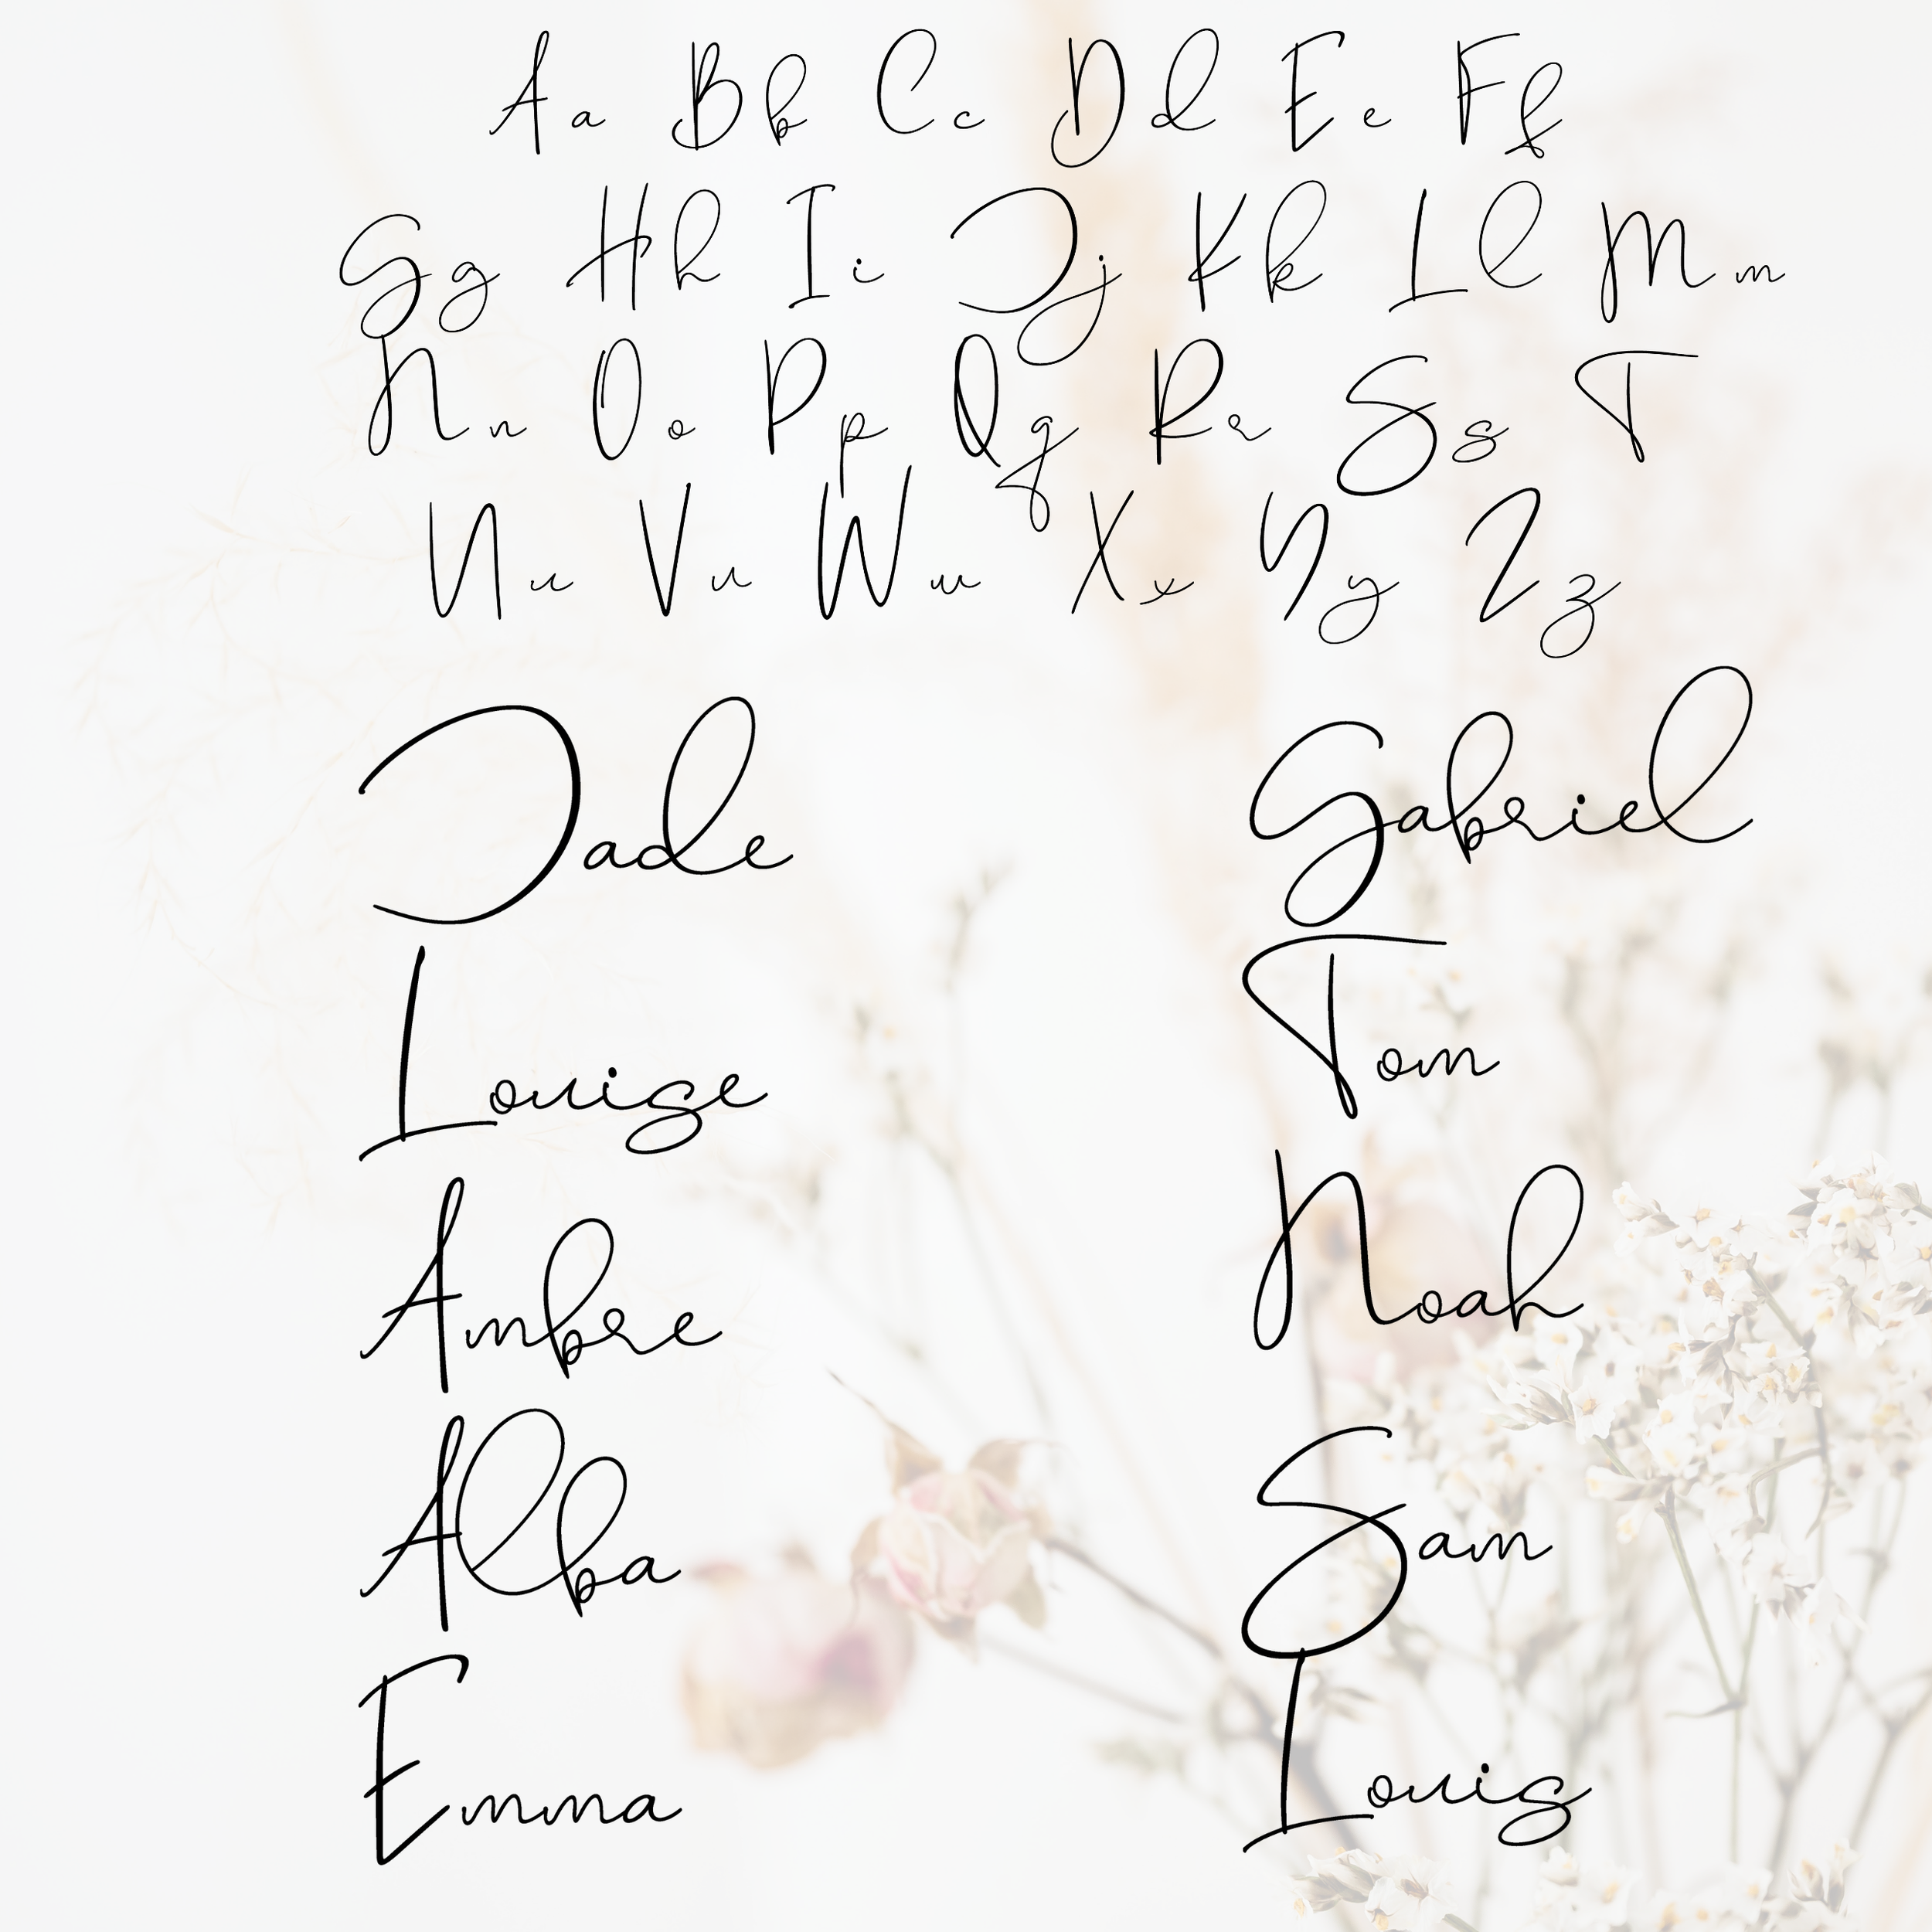 Aa Bb Cc Dd Ee Ff
Gg Hh Ii Jj Kk Ll Mm
Nn Oo Pp Qq Rr Ss T
Uu Vv Ww Xx Yy Zz
Jade
Louise
Ambre
Alba
Emma
Gabriel
Tom
Noah
Sam
Louis